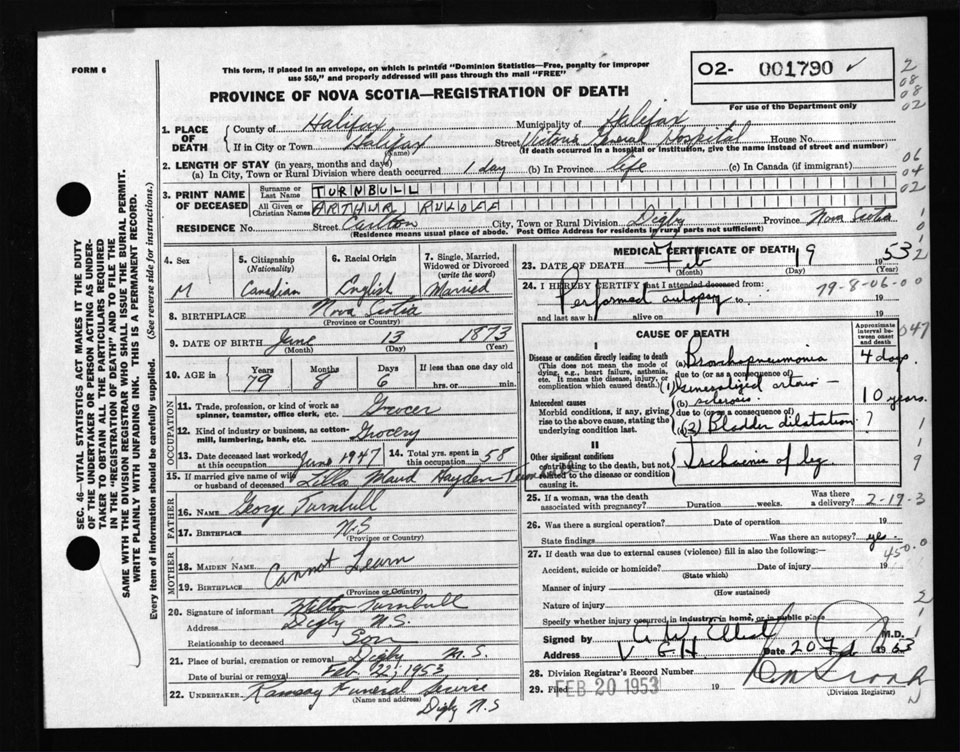 FORM 6
This form, if placed in an envelope, on which is printed "Dominion Statistics—Free, penalty for improper
use $50," and properly addressed will pass through the mail "FREE"
02- 001790 ✓
For use of the Department only
PROVINCE OF NOVA SCOTIA—REGISTRATION OF DEATH
2
08
08
02
1. PLACE OF DEATH
County of Halifax Municipality of Halifax
If in City or Town Halifax (Name) Street Victoria General Hospital House No.
(If death occurred in a hospital or institution, give the name instead of street and number)
2. LENGTH OF STAY (in years, months and days)
(a) In City, Town or Rural Division where death occurred 1 day (b) In Province life (c) In Canada (if immigrant)
06
04
02
3. PRINT NAME OF DECEASED
Surname or Last Name TURNBULL
All Given or Christian Names ARTHUR RULOFF
RESIDENCE No. Street Carlton City, Town or Rural Division Digby Province Nova Scotia
(Residence means usual place of abode. Post Office Address for residents in rural parts not sufficient)
4. Sex M
5. Citizenship (Nationality) Canadian
6. Racial Origin English
7. Single, Married, Widowed or Divorced (write the word) Married
8. BIRTHPLACE Nova Scotia
(Province or Country)
9. DATE OF BIRTH June 13 1873
(Month) (Day) (Year)
10. AGE in Years Months Days If less than one day old
79 8 6 hrs. or min.
OCCUPATION
11. Trade, profession, or kind of work as spinner, teamster, office clerk, etc. Grocer
12. Kind of industry or business, as cotton-mill, lumbering, bank, etc. Grocery
13. Date deceased last worked at this occupation June 1947 14. Total yrs. spent in this occupation 58
15. If married give name of wife or husband of deceased Lilla Maud Hayden Turnbull
FATHER
16. NAME George Turnbull
17. BIRTHPLACE N.S
(Province or Country)
MOTHER
18. MAIDEN NAME Cannot Learn
19. BIRTHPLACE
(Province or Country)
20. Signature of informant Turnbull
Address Digby N.S.
Relationship to deceased Son
21. Place of burial, cremation or removal Digby N.S.
Date of burial or removal Feb. 22, 1953
22. UNDERTAKER Ramsay Funeral Service
(Name and address)
Digby N.S
MEDICAL CERTIFICATE OF DEATH
23. DATE OF DEATH Feb 19 1953
(Month) (Day) (Year)
24. I HEREBY CERTIFY that I attended deceased from:
79-8-06-0 0
Performed autopsy to 19
and last saw h alive on 19
CAUSE OF DEATH
Approximate interval between onset and death
047
I
Disease or condition directly leading to death
(This does not mean the mode of dying, e.g., heart failure, asthenia, etc. It means the disease, injury, or complication which caused death.)
(a) Bronchopneumonia 4 days
due to (or as a consequence of)
(1) Generalized arterio-
Antecedent causes
Morbid conditions, if any, giving rise to the above cause, stating the underlying condition last.
(b) sclerosis. 10 years.
due to (or as a consequence of)
(2) Bladder dilatation ?
II
Other significant conditions
contributing to the death, but not related to the disease or condition causing it.
Ischaemia of leg
25. If a woman, was the death associated with pregnancy? Duration weeks. Was there a delivery? 2-19-3
26. Was there a surgical operation? Date of operation 19
State findings Was there an autopsy? yes.
27. If death was due to external causes (violence) fill in also the following:—
450.0
Accident, suicide or homicide? Date of injury 19
(State which)
Manner of injury
(How sustained)
Nature of injury
Specify whether injury occurred in industry, in home, or in public place
Signed by M.D.
Address V G H Date 20 Feb 1953
28. Division Registrar's Record Number
29. Filed FEB 20 1953 19
(Division Registrar)
SEC. 46—VITAL STATISTICS ACT MAKES IT THE DUTY
OF THE UNDERTAKER OR PERSON ACTING AS UNDER-
TAKER TO OBTAIN ALL THE PARTICULARS REQUIRED
IN THE "REGISTRATION OF DEATH" AND TO FILE THE
SAME WITH THE DIVISION REGISTRAR WHO SHALL ISSUE THE BURIAL PERMIT.
WRITE PLAINLY WITH UNFADING INK. THIS IS A PERMANENT RECORD.
Every item of information should be carefully supplied. (See reverse side for instructions.)